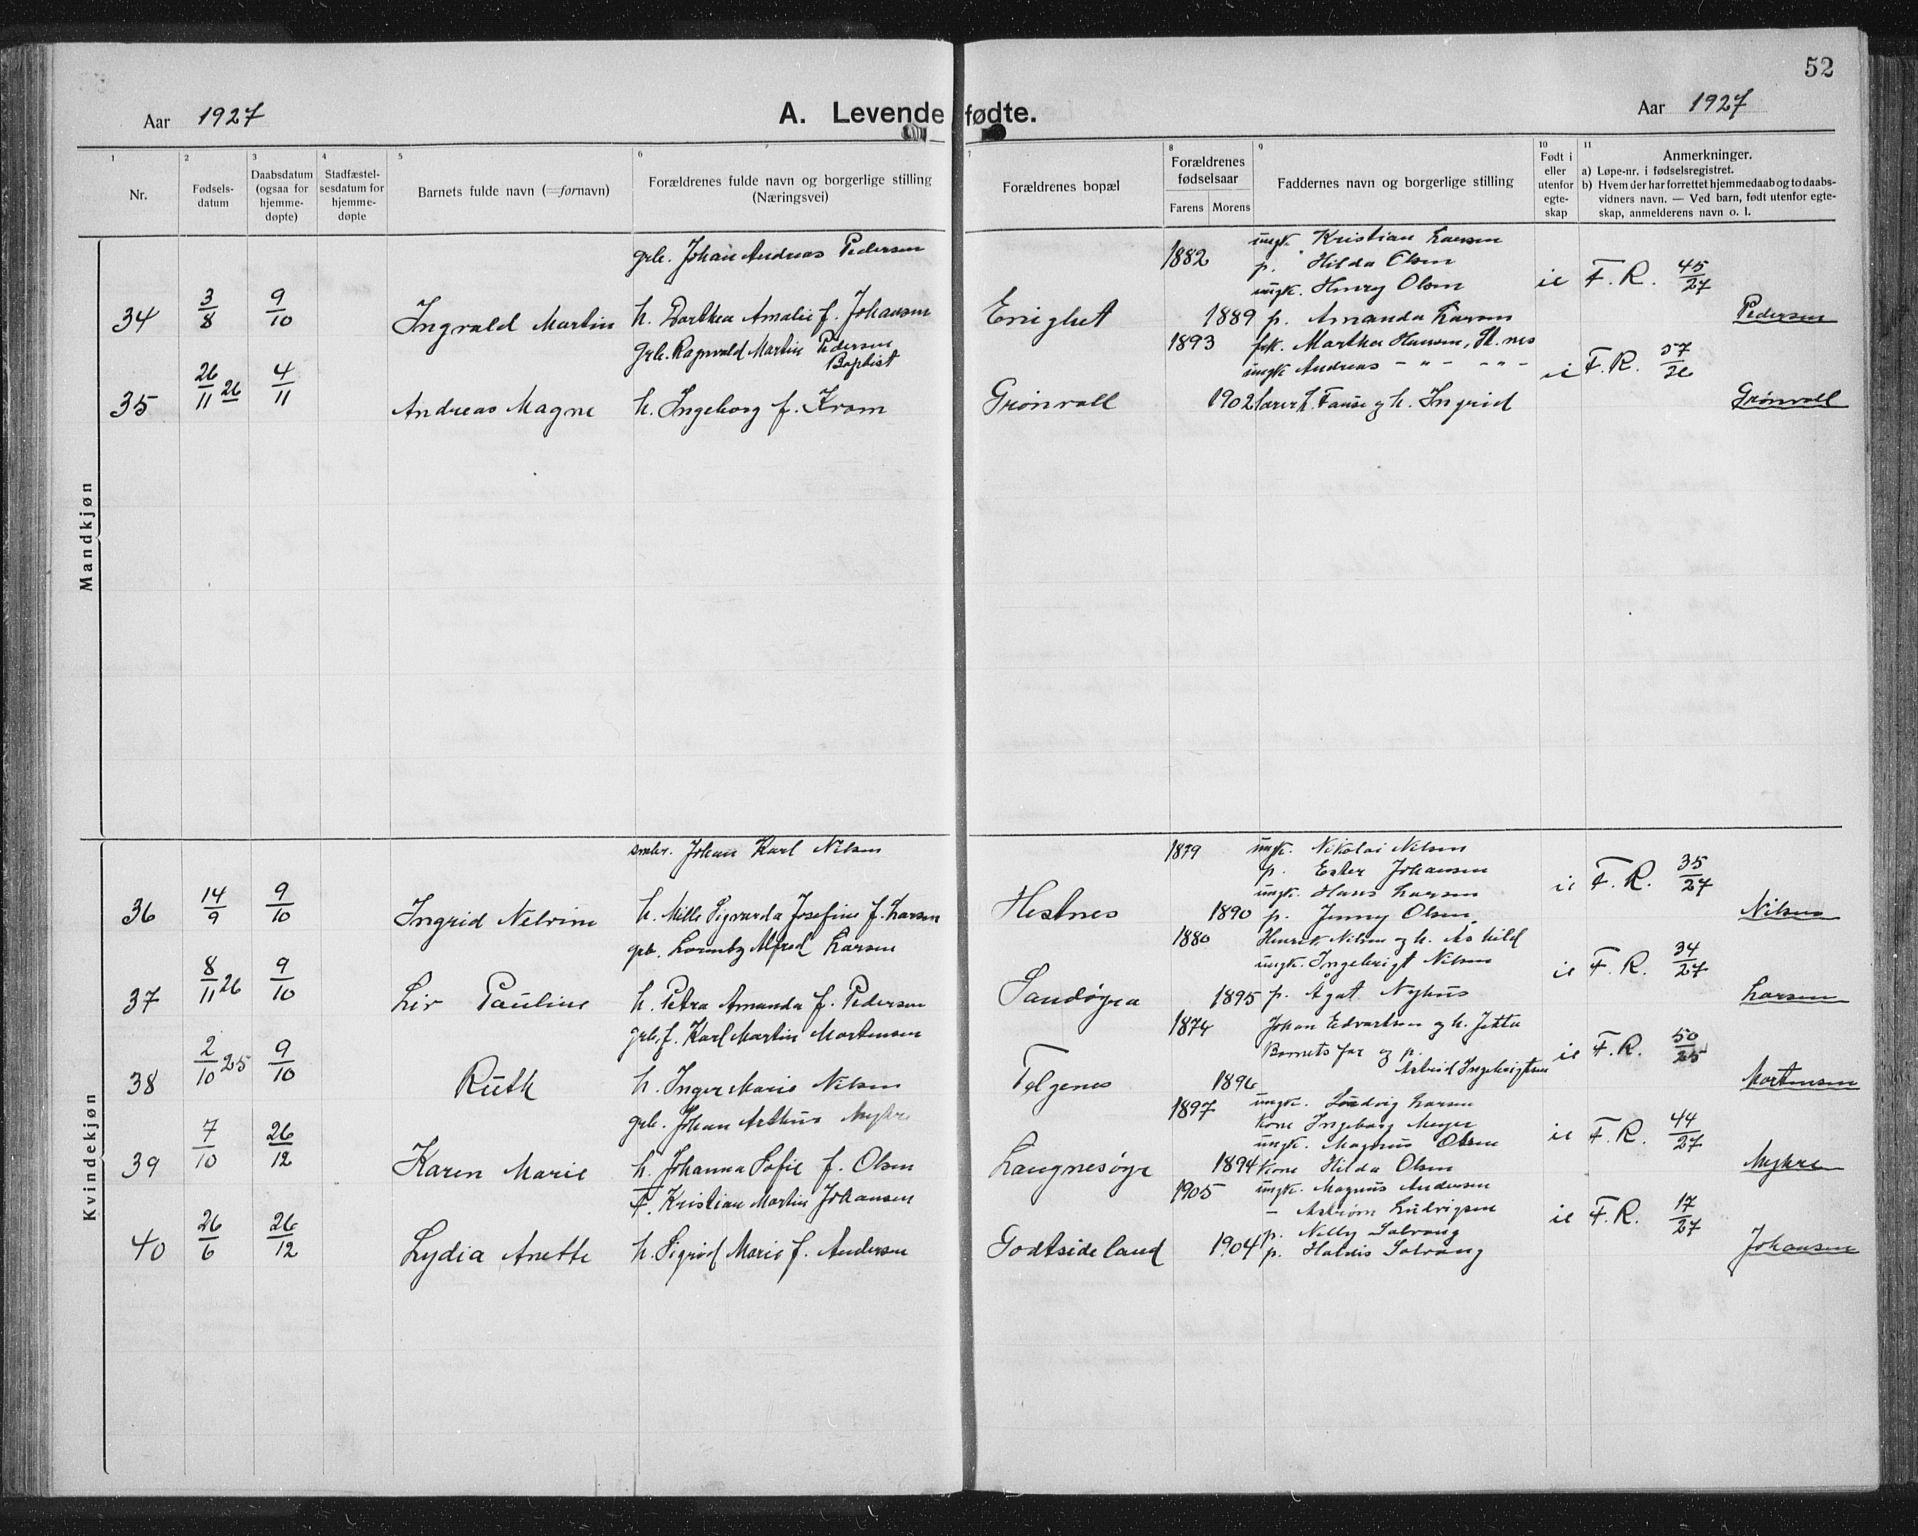 52
Aar 1927 A. Levende fødte. Aar 1927
1 2 3 4 5 6 7 8 9 10 11
Nr.
Fødsels-
datum
Daabsdatum
(ogsaa for
hjemme-
døpte)
Stadfæstel-
sesdatum for
hjemme-
døpte
Barnets fulde navn (= fornavn)
Forældrenes fulde navn og borgerlige stilling
(Næringsvei)
Forældrenes bopæl
Forældrenes
fødselsaar
Farens Morens
Faddernes navn og borgerlige stilling
Født i
eller
utenfor
egte-
skap
Anmerkninger.
a) Løpe-nr. i fødselsregistret.
b) Hvem der har forrettet hjemmedaab og to daabs-
vidners navn. — Ved barn, født utenfor egte-
skap, anmelderens navn o. l.
Mandkjøn
grb. Johan Andreas Pedersen 1882 ungk. Kristian Larsen
p. Hilda Olsen
ungk. Henry Olsen ie F. R. 45/27
34 3/8 9/10 Ingvald Martin h. Dorthea Amalie f. Johansen Enighet 1889 p. Amanda Larsen Pedersen
grb. Ragnvald Martin Pedersen 1893 frk. Marthea Hansen, St. nes
Baptist ungk Andreas - " - - " - ie F. R. 57/26
35 26/11 26 4/11 Andreas Magne h. Ingeborg f. Kram Grønvoll 1902 lærer f. Fause og h. Ingrid Grønvoll
Kvindekjøn
smbr. Johan Karl Nilsen 1879 ungk. Nikolai Nilsen
p. Ester Johansen
ungk. Hans Larsen ie F. R. 35/27
36 14/9 9/10 Ingrid Nelvine h. Mille Sigvarda Josefine f. Larsen Hestnes 1890 p. Jenny Olsen Nilsen
grb. Lornitz Alfred Larsen 1880 Henrik Nilsen og h. Ashild
ungk. Ingebrigt Nilsen ie F. R. 34/27
37 8/11 26 9/10 Liv Pauline h. Petra Amanda f. Pedersen Sandøgra 1895 p. Agat Nyhus Larsen
grb. f. Karl Martin Mortensen 1874 Johan Edvartsen og h. Jetta
Barnets far og p.
Astrid Ingebrigtsen ie F. R. 50/25
38 2/10 25 9/10 Ruth h. Inger Marie Nilsen Telgenes 1896 Mortensen
grb. Johan Arthur Myhre 1897 ungk. Ludvig Larsen
Kone Ingeborg Meyer
ungk. Magnus Olsen ie F. R. 44/27
39 7/10 26/12 Karen Marie h. Johanna Sofie f. Olsen Langnesøyr 1894 Kone Hilda Olsen Myhre
F. Kristian Martin Johansen 1905 ungk. Magnus Andersen
- Astrøm Ludvigsen ie F. R. 17/27
p. Nelly Solvang
40 26/6 26/12 Lydia Anette h. Sigrid Marie f. Andersen Godtsideland 1904 p. Haldis Solvang Johansen